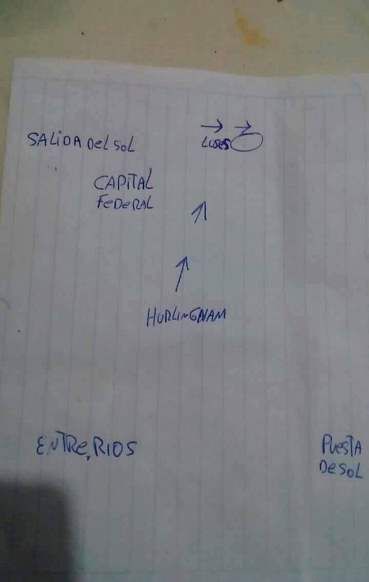 SALIDA DEL SOL
LUSES
CAPITAL
FEDERAL
HURLINGNAM
ENTRE RIOS
PUESTA
DE SOL